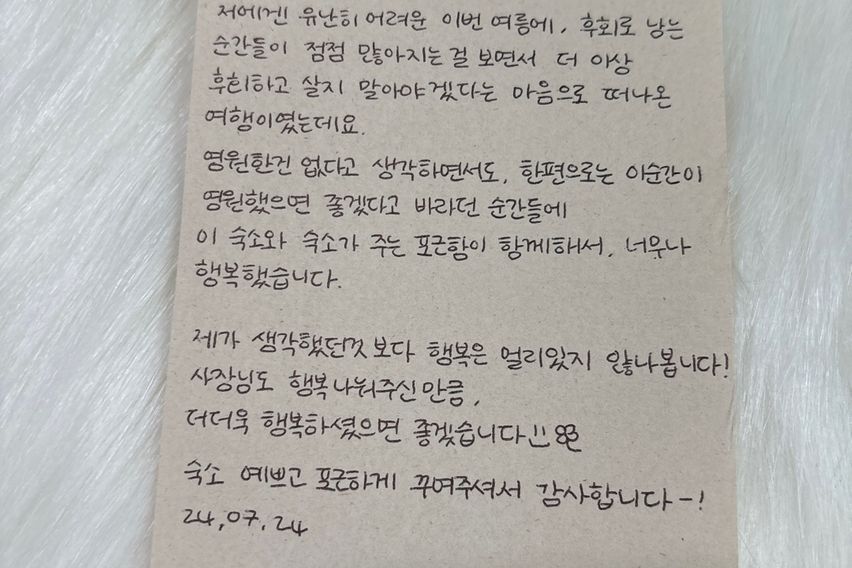 저에겐 유난히 어려운 이번 여름에, 후회로 남는
순간들이 점점 많아지는 걸 보면서 더 이상
후회하고 살지 말아야겠다는 마음으로 떠나온
여행이였는데요.
영원한건 없다고 생각하면서도, 한편으로는 이순간이
영원했으면 좋겠다고 바라던 순간들에
이 숙소와 숙소가 주는 포근함이 함께해서, 너무나
행복했습니다.
제가 생각했던것 보다 행복은 멀리있지 않나봅니다!
사장님도 행복 나눠주신 만큼,
더더욱 행복하셨으면 좋겠습니다!!
숙소 예쁘고 포근하게 꾸며주셔서 감사합니다-!
24.07.24